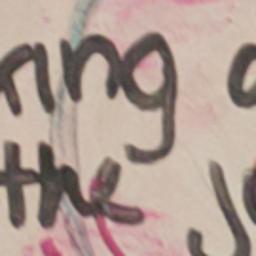 ring
the J